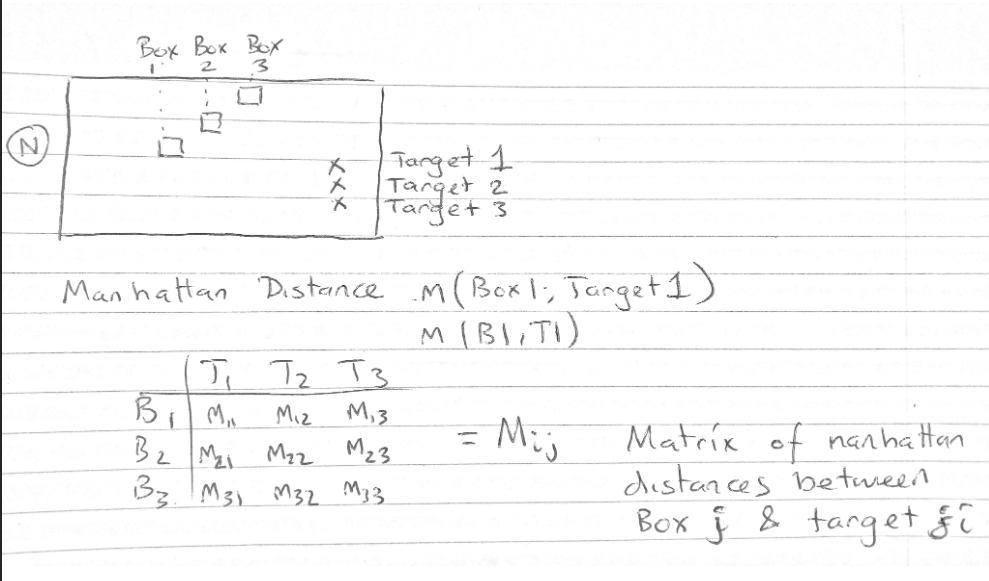 Box Box Box
1 2 3
N
Target 1
Target 2
Target 3
Manhattan Distance M(Box1, Target1)
M(B1,T1)
T1 T2 T3
B1 M11 M12 M13
B2 M21 M22 M23
B3 M31 M32 M33
= Mij Matrix of nanhattan
distances between
Box j & target i